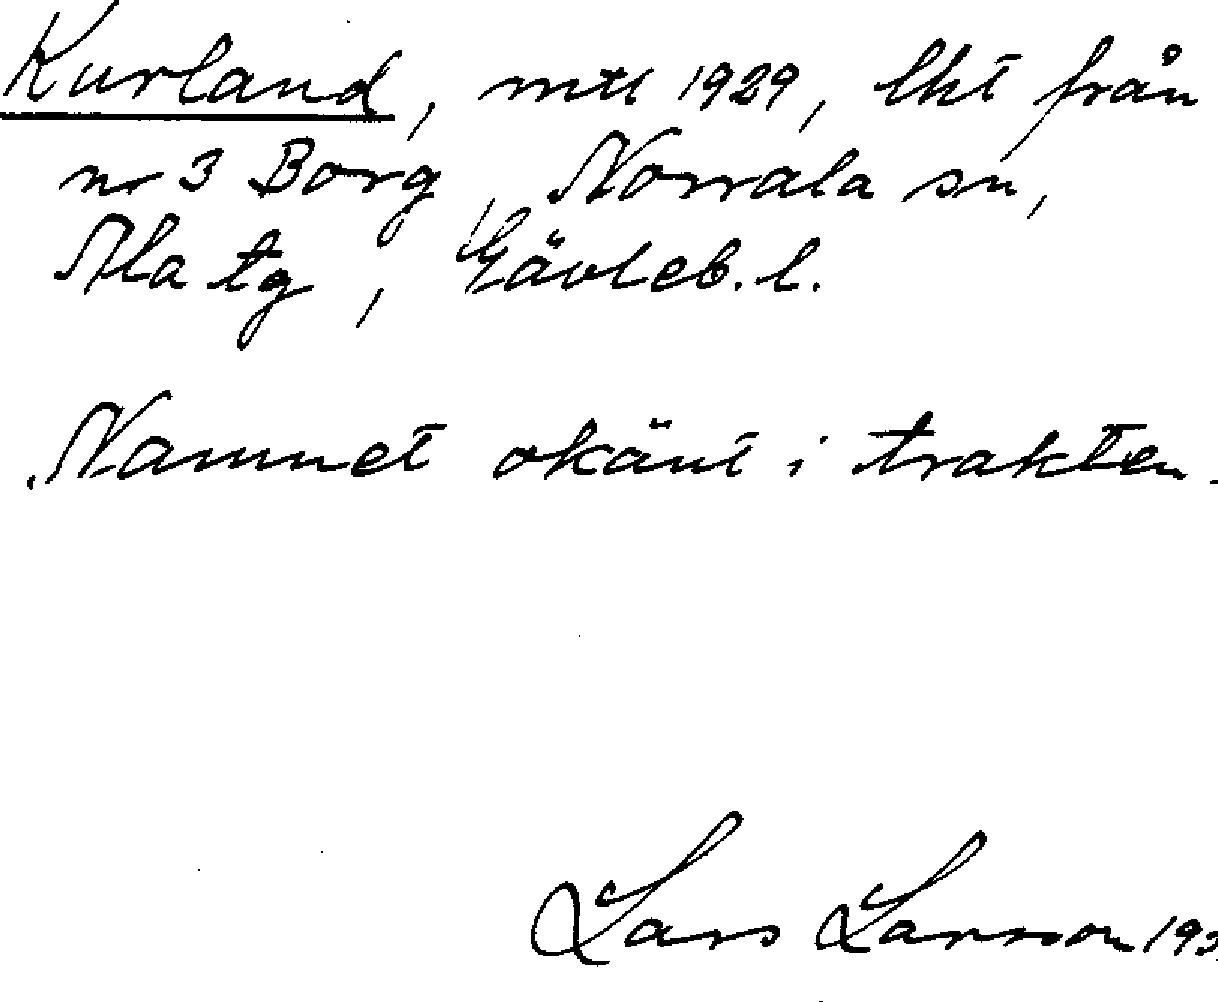 Kurland, mtl 1929, lht från
nr 3 Borg, Norrala sn,
Ala tg, Gävleb. l.
Namnet okänt i trakten.
Lars Larsson 193